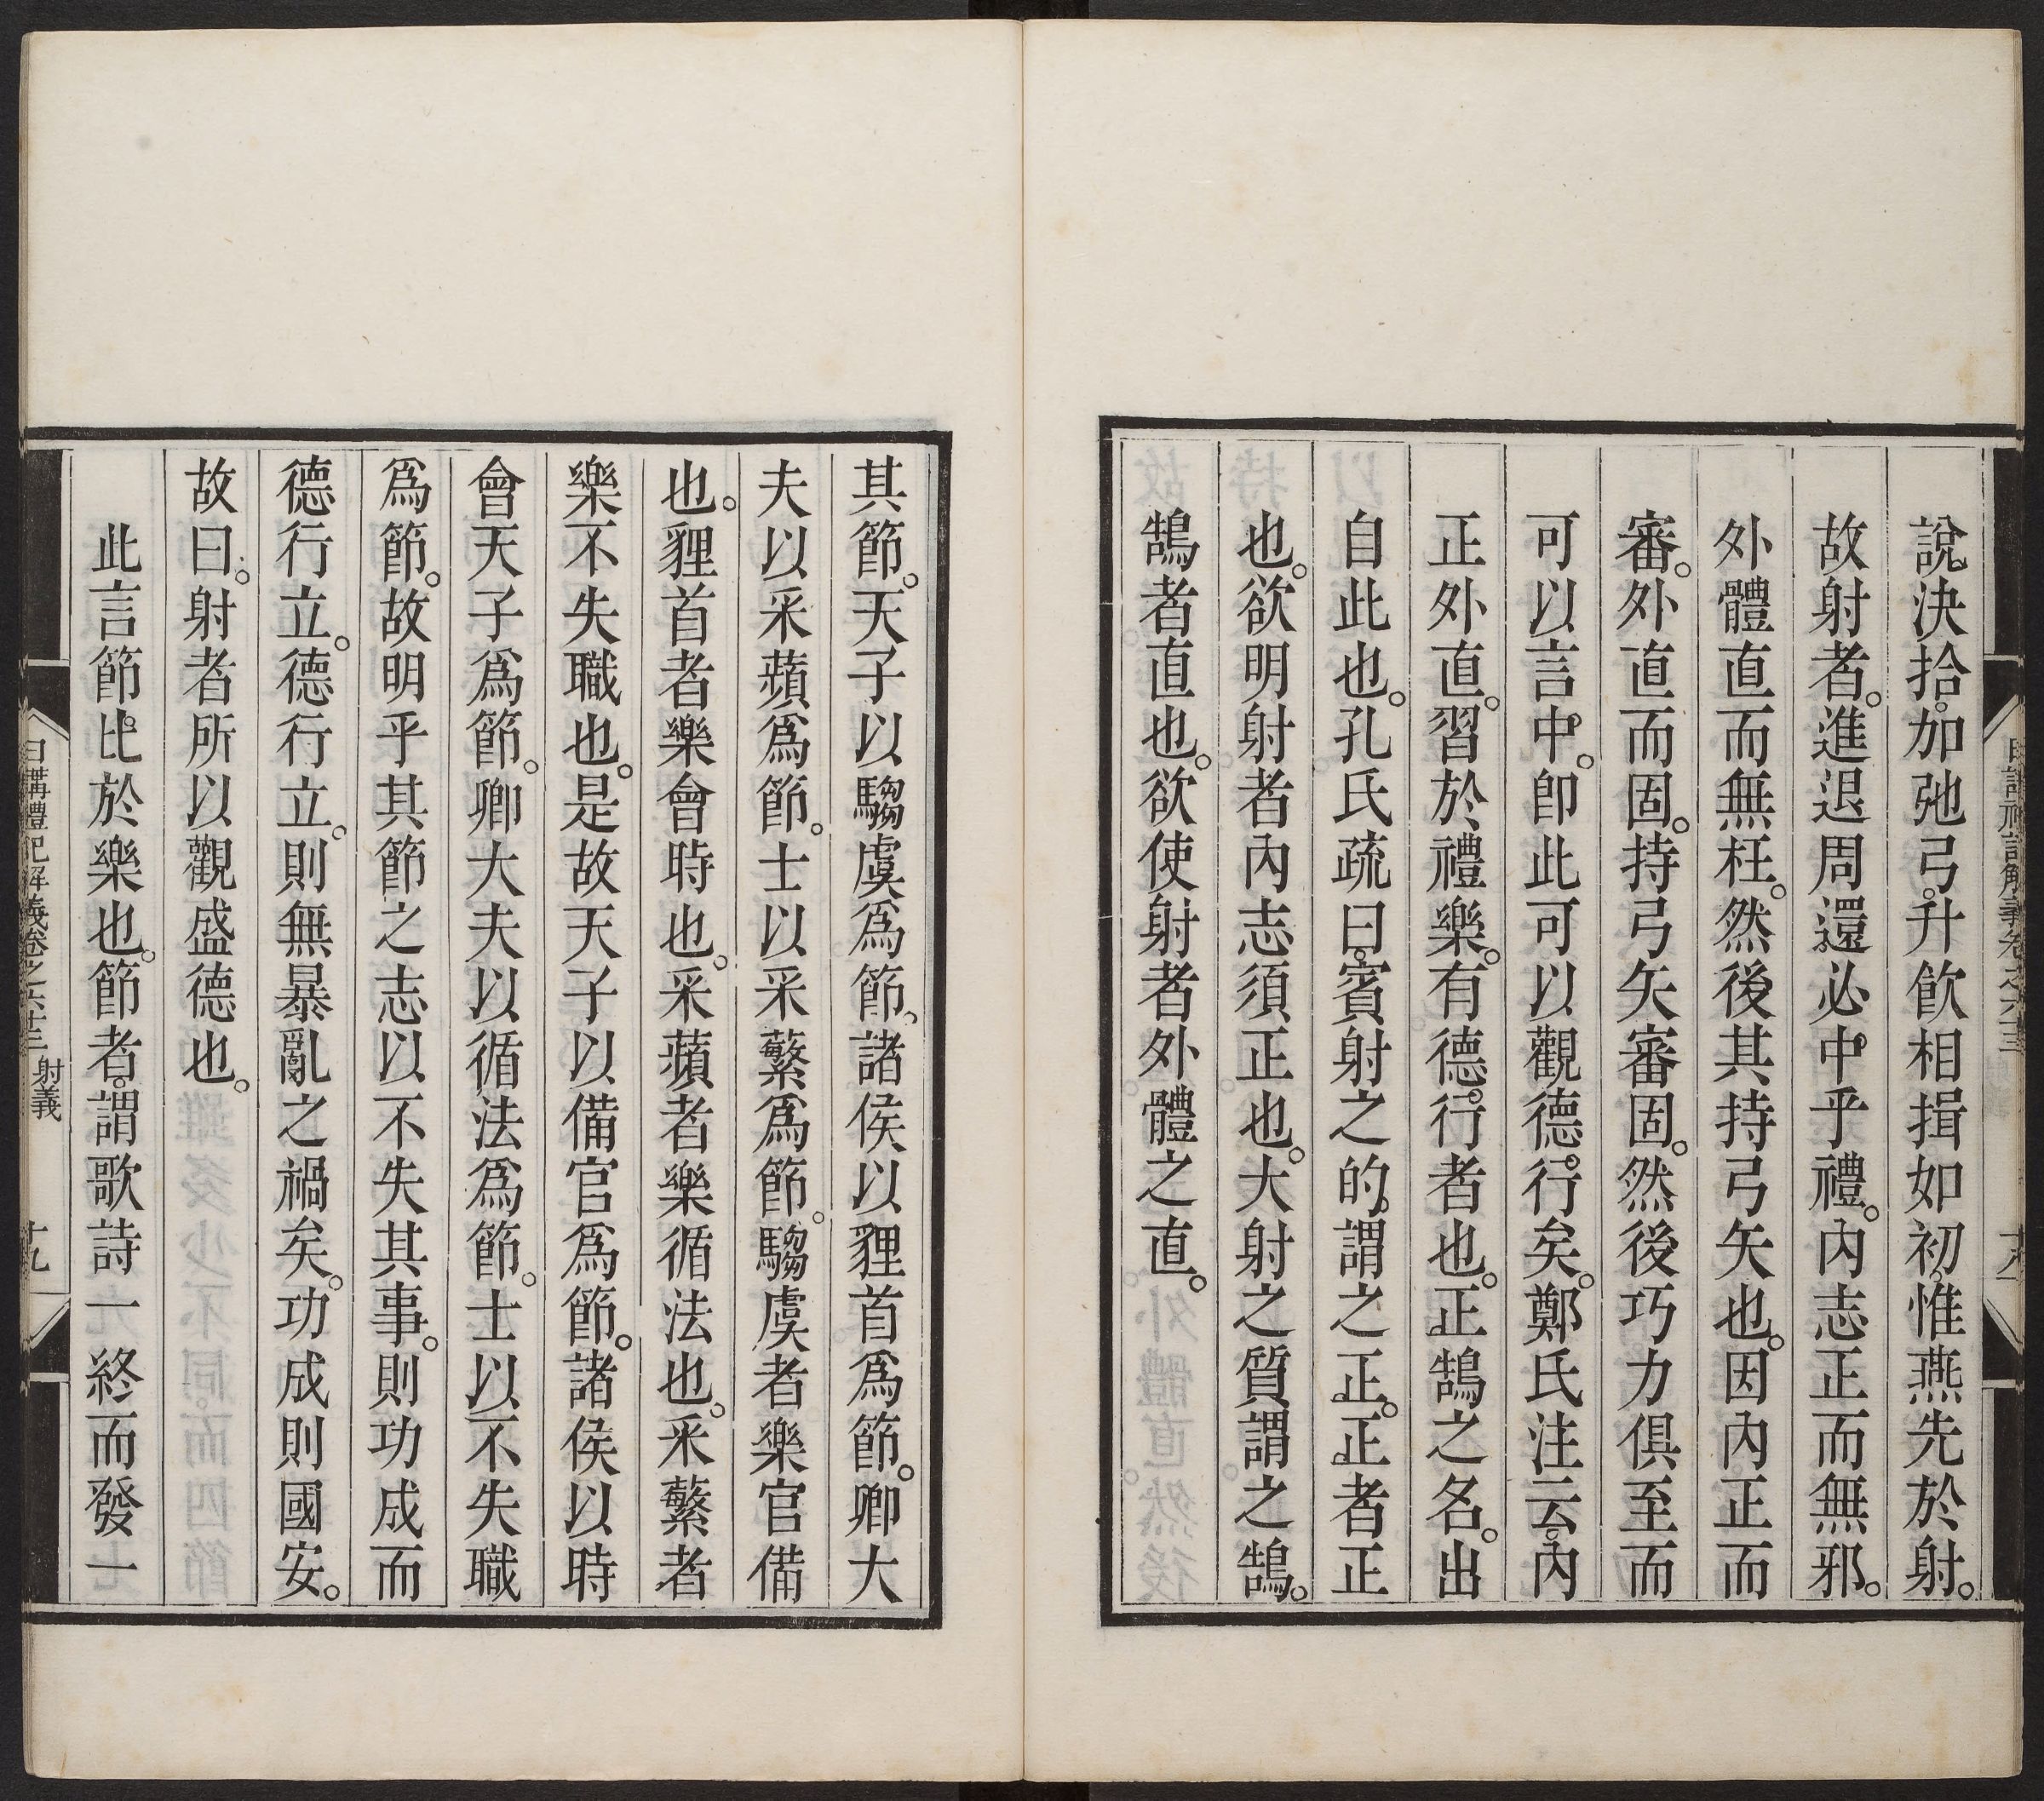 說決拾。加弛弓。升飮相揖如初。惟燕先於射。
故射者。進退周還。必中乎禮。內志正而無邪。
外體直而無枉。然後其持弓矢也。因內正而
審。外直而固。持弓矢審固。然後巧力俱至而
可以言中。卽此可以觀德行矣。鄭氏注云。內
正外直。習於禮樂。有德行者也。正鵠之名。出
自此也。孔氏疏曰。賓射之的。謂之正。正者正
也。欲明射者內志須正也。大射之質。謂之鵠。
鵠者直也。欲使射者外體之直。
其節。天子以騶虞爲節。諸侯以貍首爲節。卿大
夫以采蘋爲節。士以采蘩爲節。騶虞者樂官備
也。貍首者樂會時也。采蘋者樂循法也。采蘩者
樂不失職也。是故天子以備官爲節。諸侯以時
會天子爲節。卿大夫以循法爲節。士以不失職
爲節。故明乎其節之志以不失其事。則功成而
德行立。德行立。則無暴亂之禍矣。功成則國安。
故曰。射者所以觀盛德也。
此言節比於樂也。節者。謂歌詩一終而發一
日講禮記解義卷之六十三 射義 十九